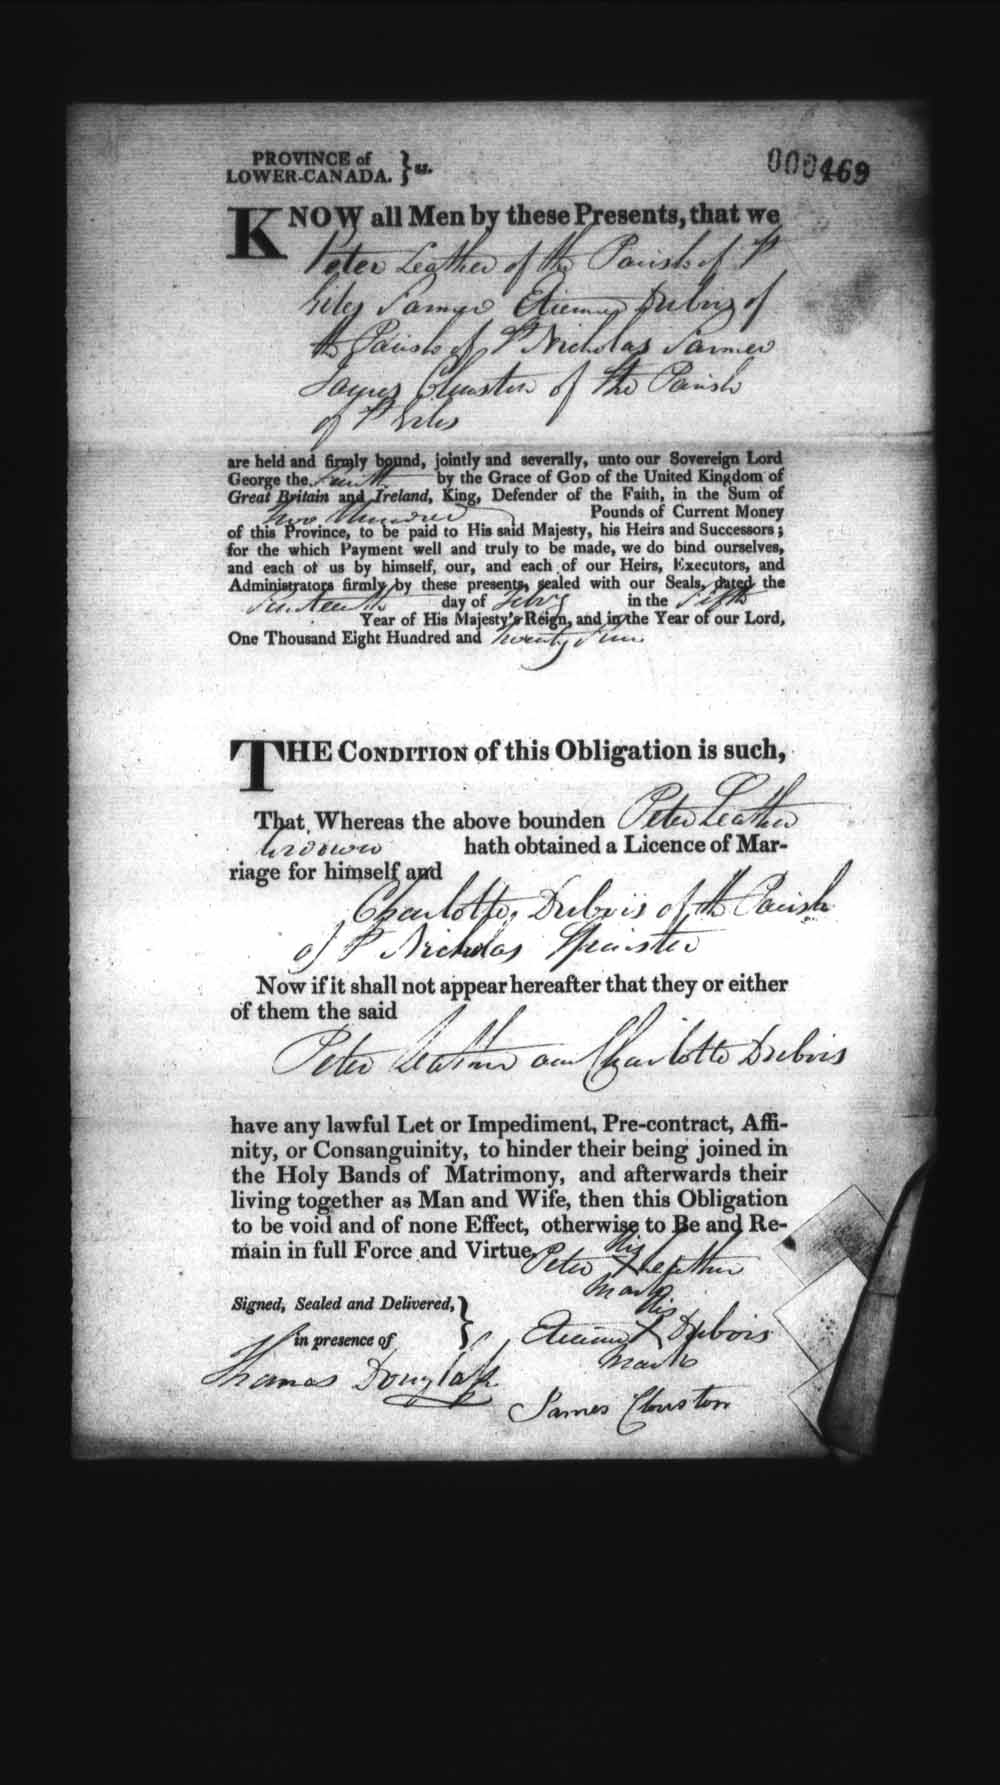 PROVINCE of
LOWER-CANADA. } ss.
000469
KNOW all Men by these Presents, that we
Peter Leather of the Parish of St
Giles Farmer Etienne Dubois of
the Parish of St Nicholas Farmer
James Clouston of the Parish
of St Giles
are held and firmly bound, jointly and severally, unto our Sovereign Lord
George the Fourth by the Grace of GOD of the United Kingdom of
Great Britain and Ireland, King, Defender of the Faith, in the Sum of
Two Hundred Pounds of Current Money
of this Province, to be paid to His said Majesty, his Heirs and Successors;
for the which Payment well and truly to be made, we do bind ourselves,
and each of us by himself, our, and each of our Heirs, Executors, and
Administrators firmly by these presents, sealed with our Seals, dated the
day of Feby in the
Year of His Majesty's Reign, and in the Year of our Lord,
One Thousand Eight Hundred and Twenty
THE CONDITION of this Obligation is such,
That Whereas the above bounden Peter Leather
hath obtained a Licence of Mar-
riage for himself and
Charlotte Dubois of the Parish
of St Nicholas Spinster
Now if it shall not appear hereafter that they or either
of them the said
Peter Leather and Charlotte Dubois
have any lawful Let or Impediment, Pre-contract, Affi-
nity, or Consanguinity, to hinder their being joined in
the Holy Bands of Matrimony, and afterwards their
living together as Man and Wife, then this Obligation
to be void and of none Effect, otherwise to Be and Re-
main in full Force and Virtue.
his
Peter X Leather
mark
Signed, Sealed and Delivered, }
in presence of
his
Etienne X Dubois
mark
Thomas Douglass
James Clouston